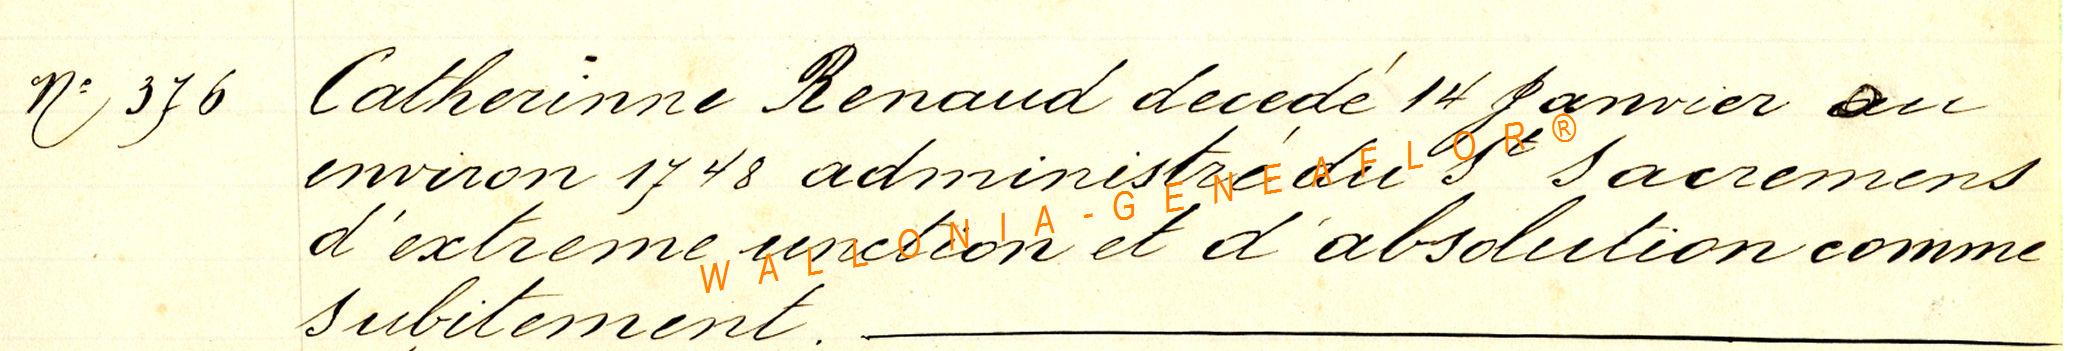 N° 376 Catherinne Renaud decedé 14 Janvier au
environ 1748 administré du St Sacremens
d'extreme unction et d'absolution comme
subitement.
WALLONIA-GENEAFLOR®